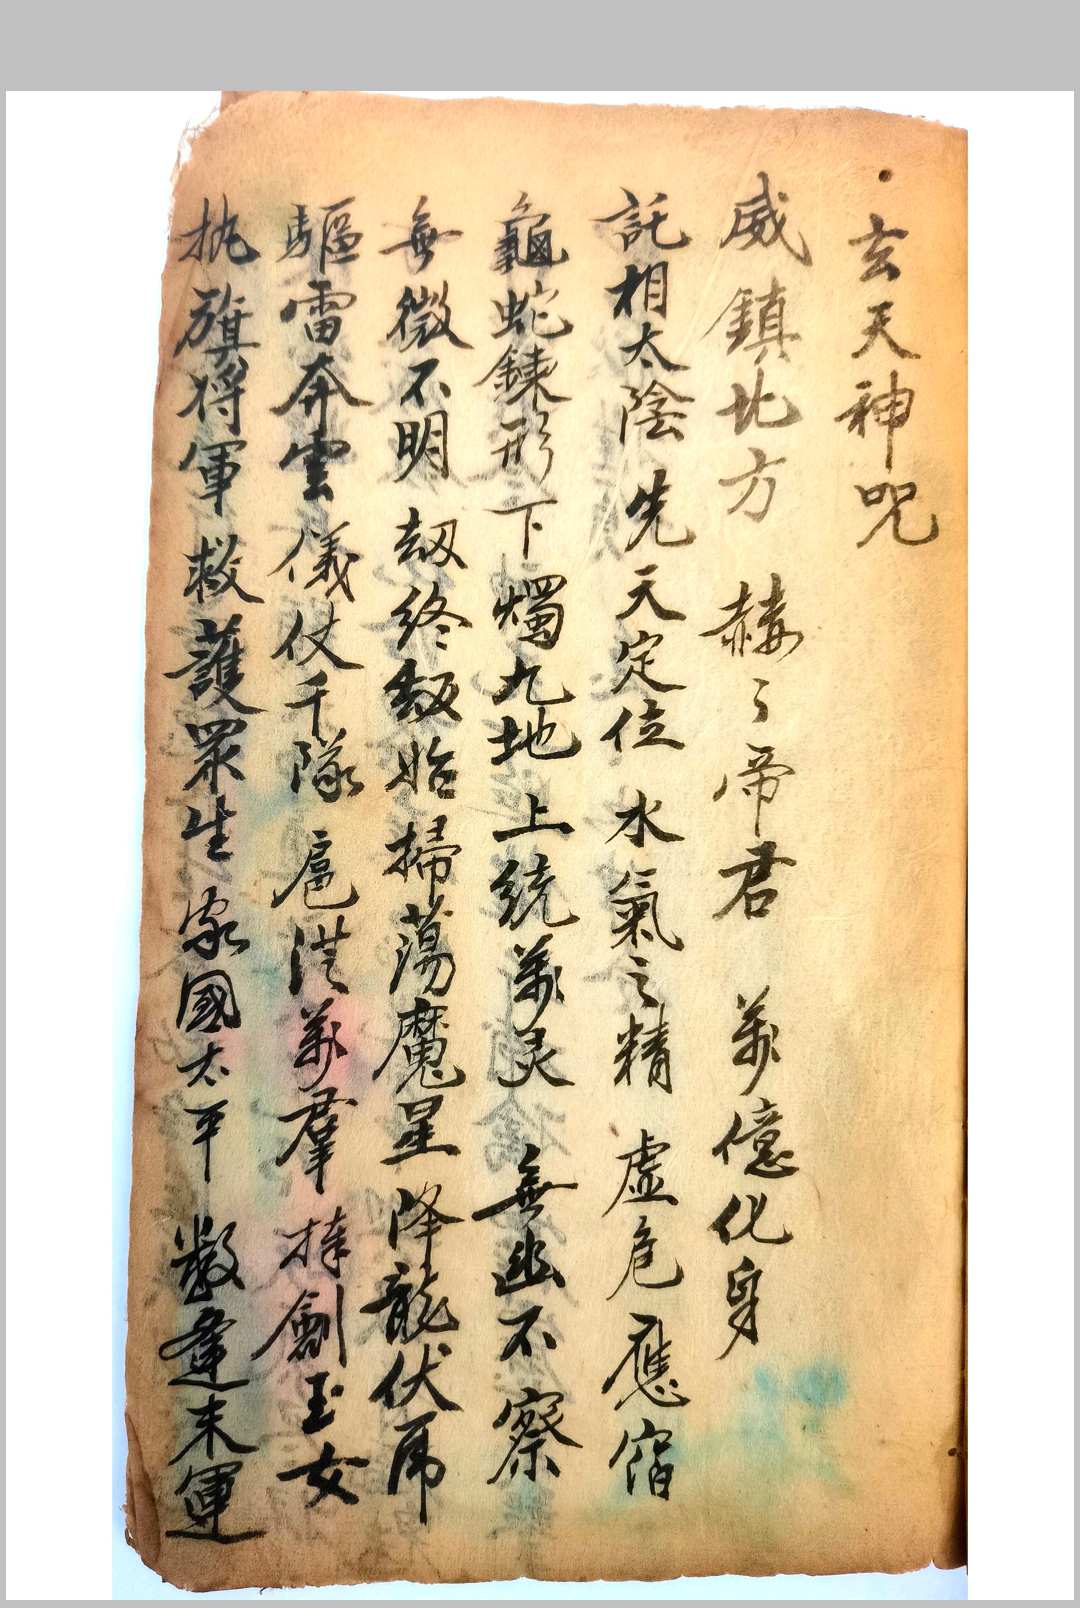 玄天神咒
威鎮北方 赫々帝君 萬億化身
託相太陰 先天定位 水氣之精 虛危應宿
龜蛇鍊形 下燭九地 上統萬灵 無幽不察
無微不明 劫終劫始 掃蕩魔星 降龍伏虎
驅雷奔雲 儀仗千隊 扈從萬羣 捧劍玉女
执旗将軍 救護眾生 家國太平 數逢末運